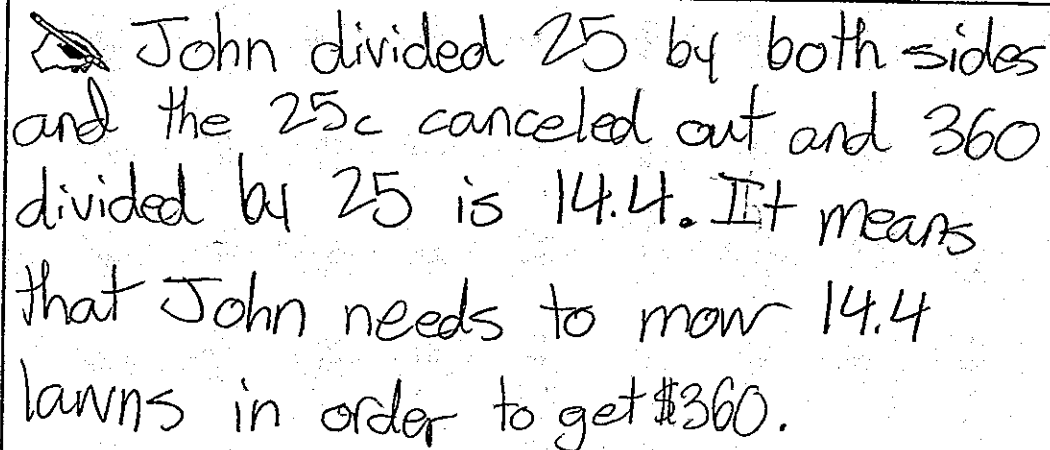 John divided 25 by both sides
and the 25c canceled out and 360
divided by 25 is 14.4. It means
that John needs to mow 14.4
lawns in order to get $360.